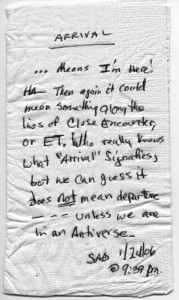 ARRIVAL
... Means I'm here!
HA— Then again it could
mean something along the
lines of Close Encounters
or ET. Who really knows
what "Arrival" Signafies,
but we can guess it
does not mean departure
- - - unless we are
in an Antiverse_
SAB 1/24/06
@ 9:39 pm.